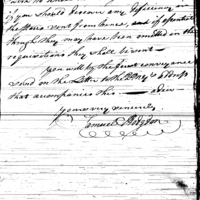 if you should discover any deficiency in
the Stores sent from hence, and if wanted
though they may have been omitted in the
requisitions they shall be sent —
You will by the first conveyance
send on the Letter to the
that accompanies this — adieu —
Yours very sincerely,
Samuel Hodgdon